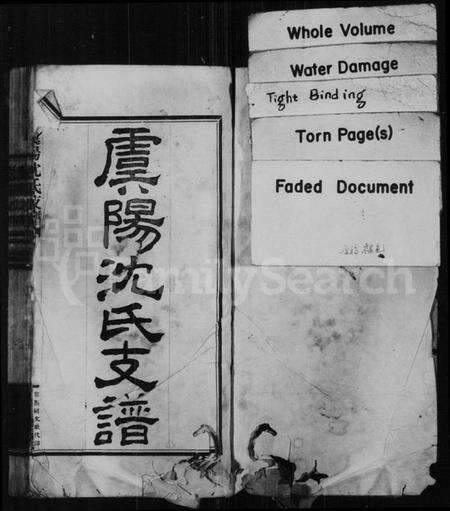 虞陽沈氏支譜
Whole Volume
Water Damage
Tight Binding
Torn Page(s)
Faded Document
FamilySearch